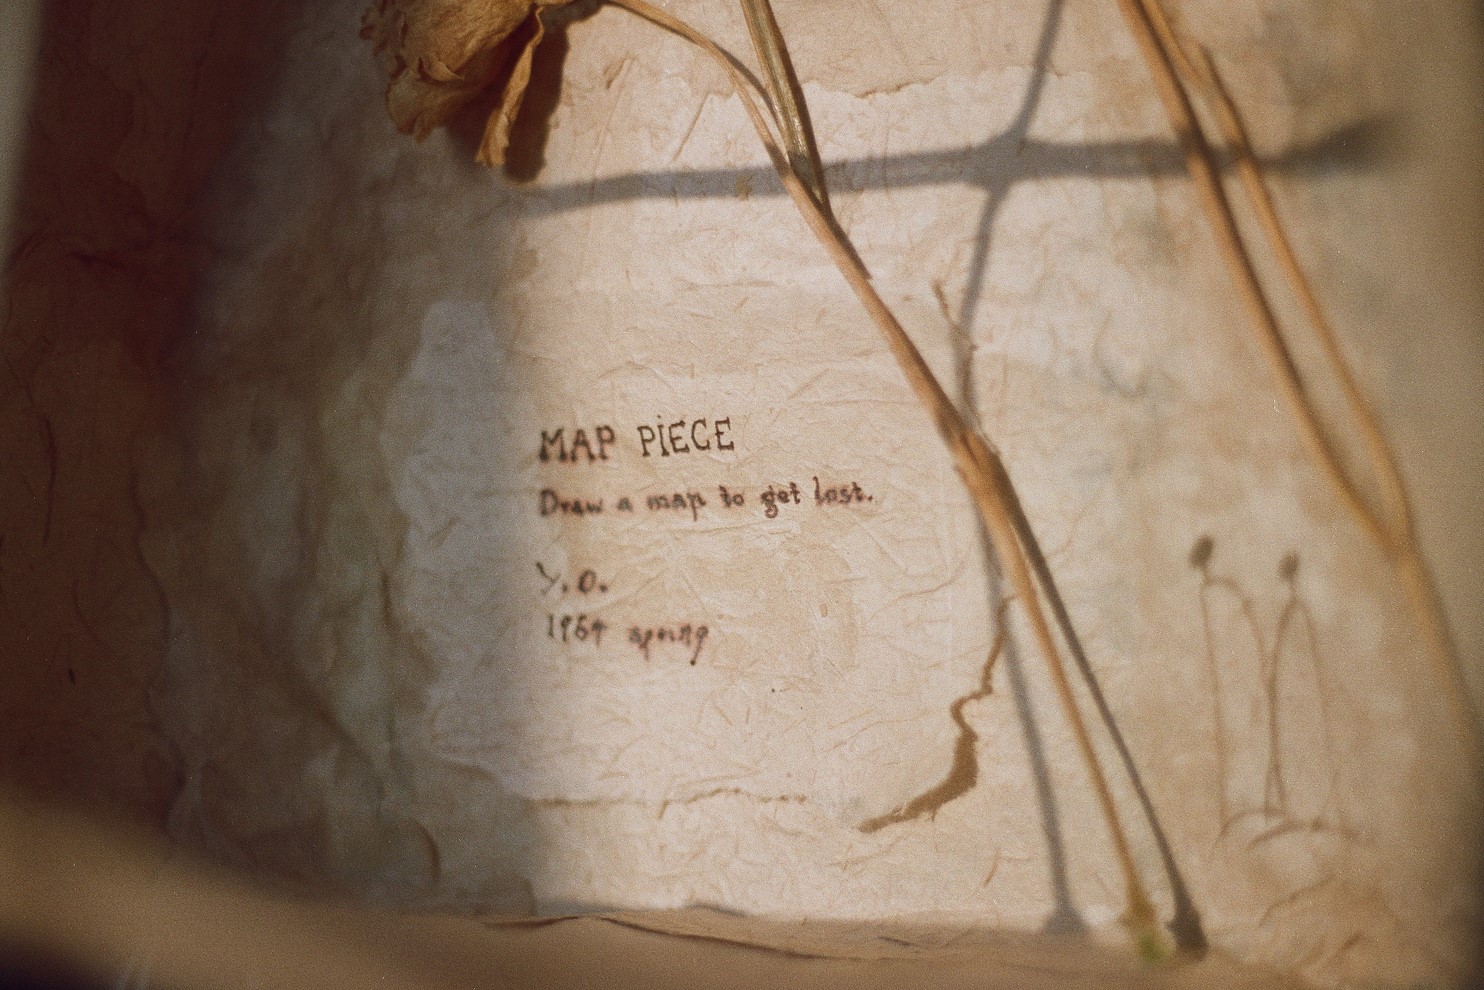 MAP PIECE
Draw a map to get lost.
Y.O.
1964 spring